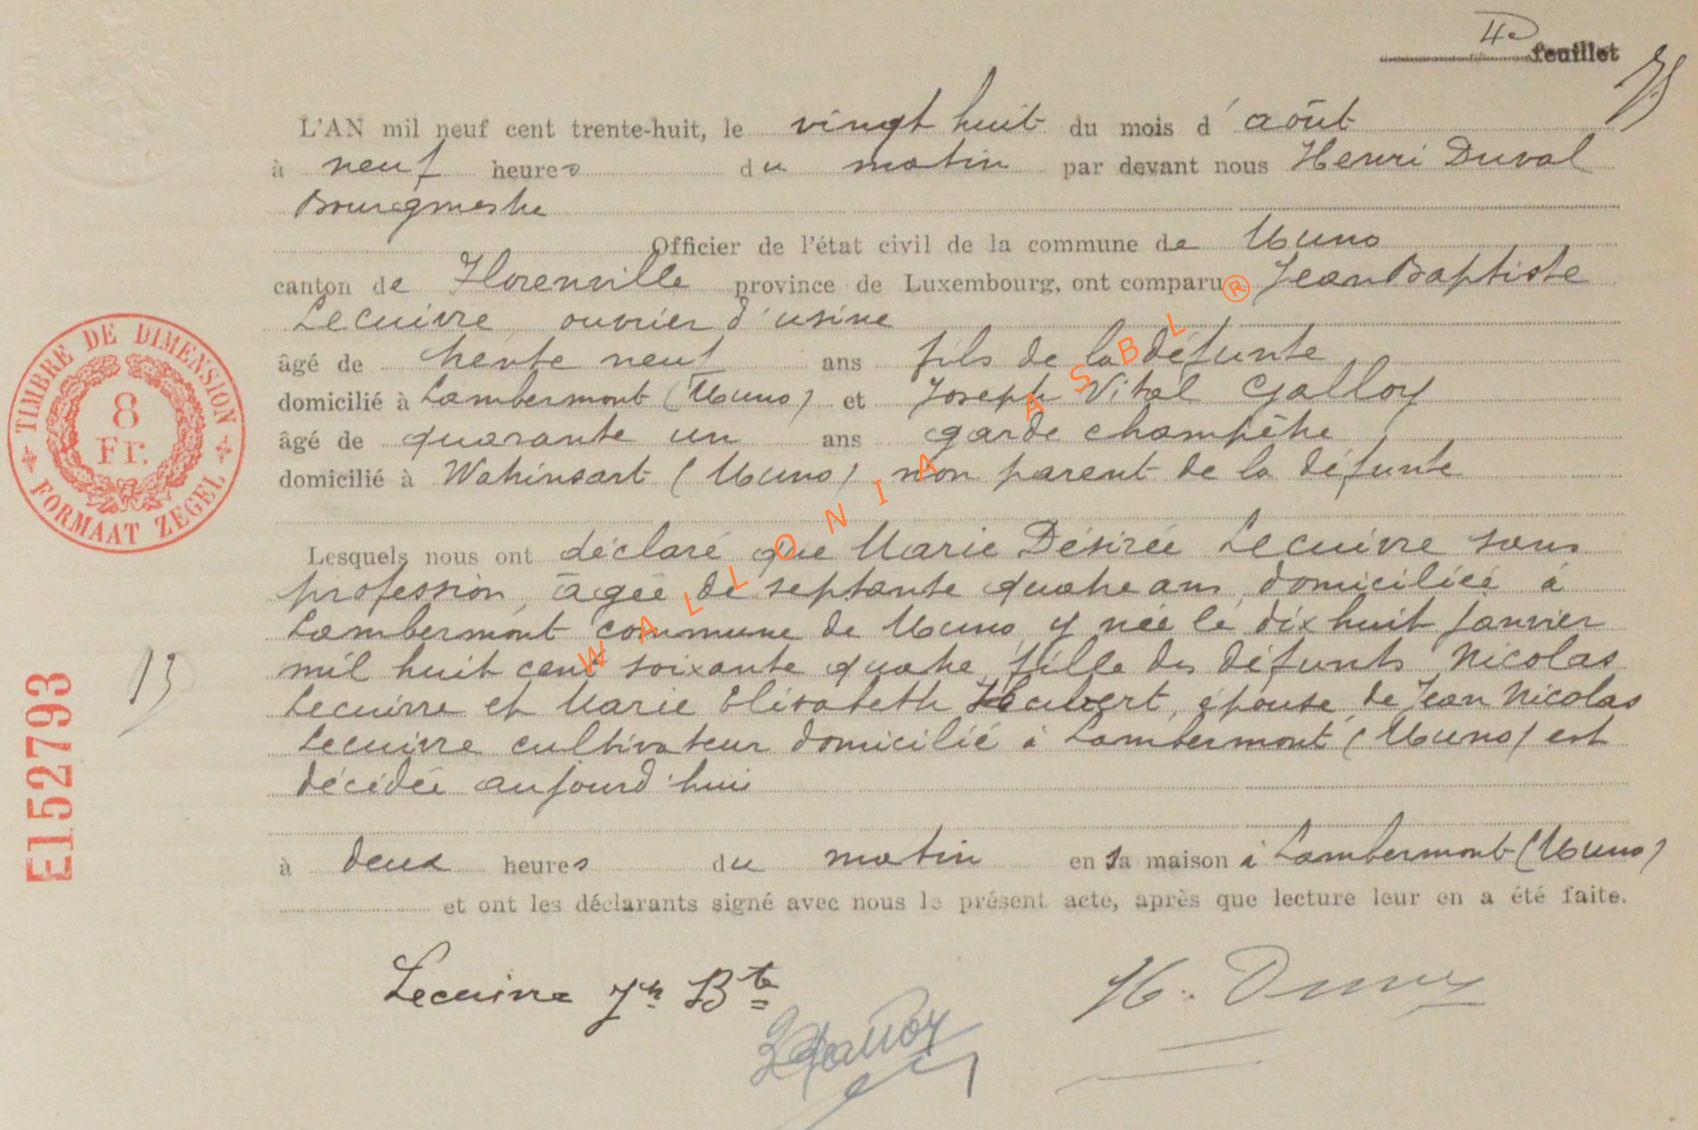 4e feuillet
L'AN mil neuf cent trente-huit, le vingt huit du mois d'août
à neuf heures du matin par devant nous Henri Duval
Bourgmestre
Officier de l'état civil de la commune de Muno
canton de Florenville province de Luxembourg, ont comparu Jean Baptiste
Lecuivre ouvrier d'usine
âgé de trente neuf ans fils de la défunte
domicilié à Lambermont (Muno) et Joseph Vital Galloy
âgé de quarante un ans garde champêtre
domicilié à Watrinsart (Muno) non parent de la défunte
Lesquels nous ont déclaré que Marie Désirée Lecuivre sans
profession, âgée de septante quatre ans, domiciliée à
Lambermont commune de Muno y née le dix huit Janvier
mil huit cent soixante quatre, fille des défunts Nicolas
Lecuivre et Marie Elisabeth épouse de Jean Nicolas
Lecuivre cultivateur domicilié à Lambermont (Muno) est
décédée aujourd'hui
à deux heures du matin en sa maison à Lambermont (Muno)
et ont les déclarants signé avec nous le présent acte, après que lecture leur en a été faite.
Lecuivre Jn Bte
H. Duval
Galloy
TIMBRE DE DIMENSION
8
Fr.
FORMAAT ZEGEL
E152793
13
WALLONIA ASBL ®